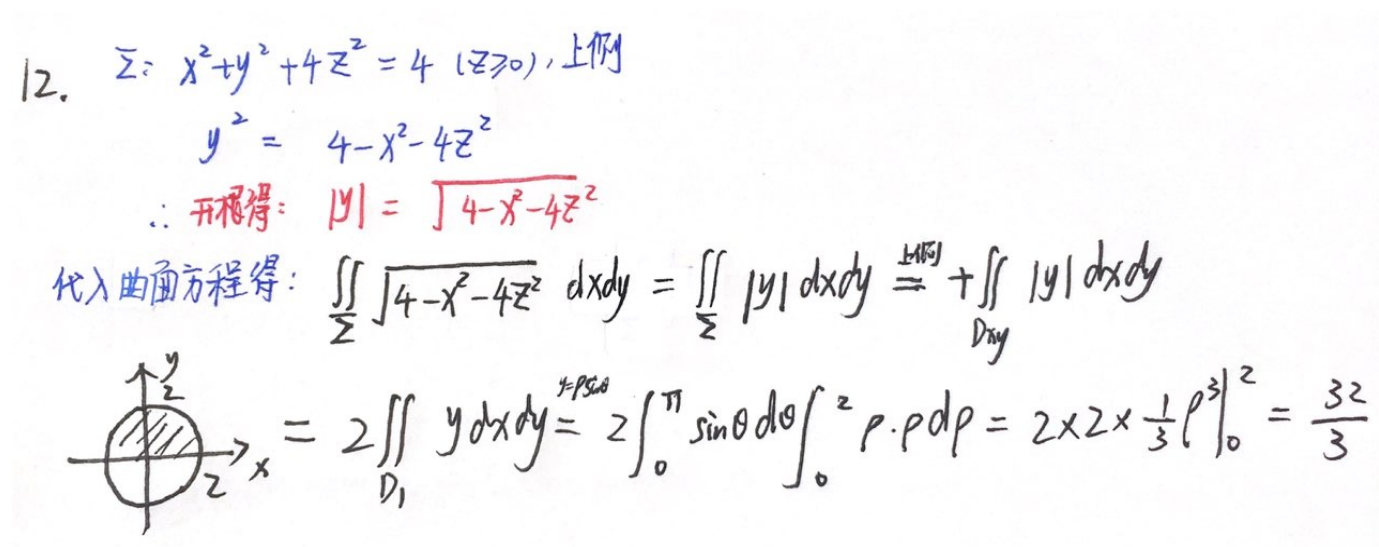 12. Σ: x²+y²+4z²=4 (z≥0),上侧
y² = 4-x²-4z²
∴ 开根得: |y| = √(4-x²-4z²)
代入曲面方程得: ∬_Σ √(4-x²-4z²) dxdy = ∬_Σ |y| dxdy 上侧= +∬_Dxy |y| dxdy
y 2 x 2 = 2∬_D₁ y dxdy y=ρsinθ= 2∫₀^π sinθ dθ ∫₀² ρ·ρ dρ = 2×2×1/3 ρ³|₀² = 32/3